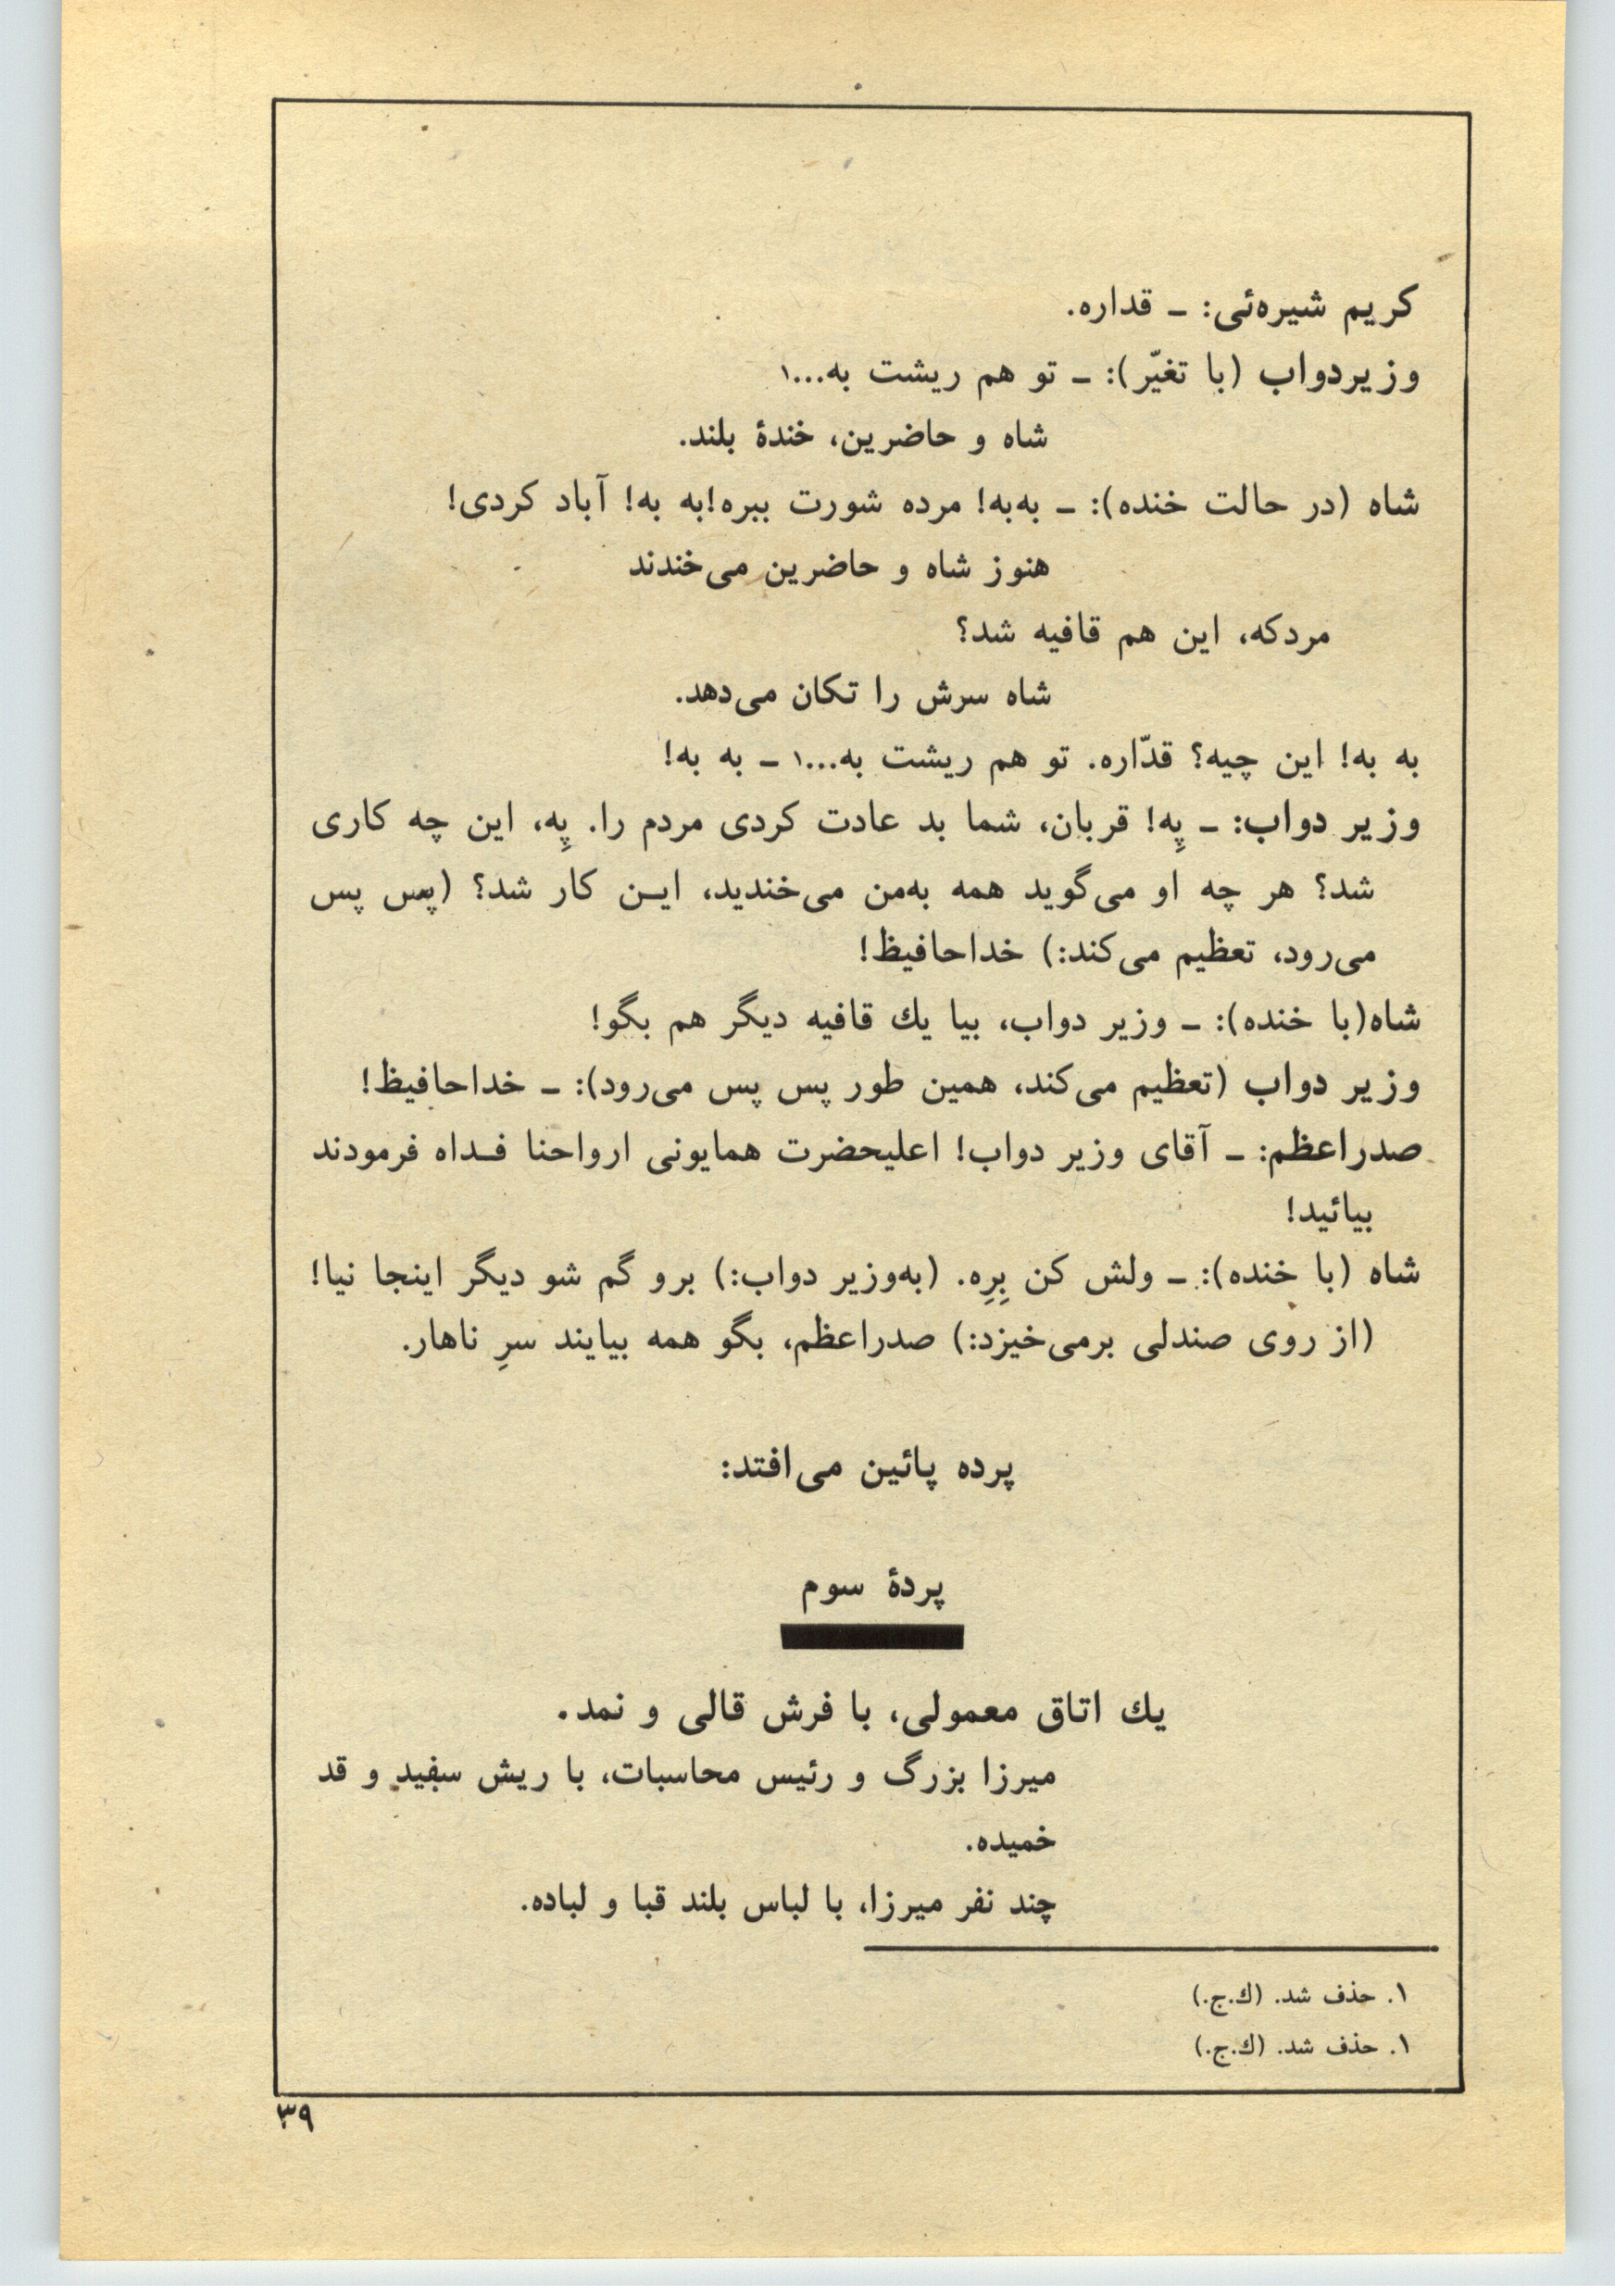 کریم شیره‌ئی: ــ قداره.
وزیردواب (با تغیّر): ــ تو هم ریشت به...۱
شاه و حاضرین، خندهٔ بلند.
شاه (در حالت خنده): ــ به‌به! مرده شورت ببره!به به! آباد کردی!
هنوز شاه و حاضرین می‌خندند
مردکه، این هم قافیه شد؟
شاه سرش را تکان می‌دهد.
به به! این چیه؟ قدّاره. تو هم ریشت به...۱ ــ به به!
وزیر دواب: ــ پِه! قربان، شما بد عادت کردی مردم را. پِه، این چه کاری
شد؟ هر چه او می‌گوید همه به‌من می‌خندید، ایـن کار شد؟ (پس پس
می‌رود، تعظیم می‌کند:) خداحافیظ!
شاه(با خنده): ــ وزیر دواب، بیا یك قافیه دیگر هم بگو!
وزیر دواب (تعظیم می‌کند، همین طور پس پس می‌رود): ــ خداحافیظ!
صدراعظم: ــ آقای وزیر دواب! اعلیحضرت همایونی ارواحنا فـداه فرمودند
بیائید!
شاه (با خنده): ــ ولش کن بِرِه. (به‌وزیر دواب:) برو گم شو دیگر اینجا نیا!
(از روی صندلی برمی‌خیزد:) صدراعظم، بگو همه بیایند سرِ ناهار.
پرده پائین می‌افتد:
پردهٔ سوم
یك اتاق معمولی، با فرش قالی و نمد.
میرزا بزرگ و رئیس محاسبات، با ریش سفید و قد
خمیده.
چند نفر میرزا، با لباس بلند قبا و لباده.
۱. حذف شد. (ك.ج.)
۱. حذف شد. (ك.ج.)
۳۹